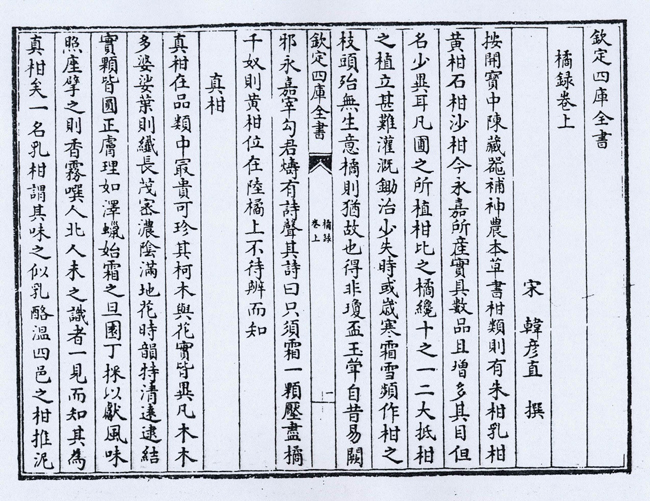 欽定四庫全書
橘録巻上
宋 韓彦直 撰
按開寶中陳藏噐補神農本草書柑類則有朱柑乳柑
黄柑石柑沙柑今永嘉所産實具數品且增多其目但
名少異耳凡圃之所植柑比之橘纔十之一二大抵柑
之植立甚難灌溉鋤治少失時或嵗寒霜雪頻作柑之
枝頭殆無生意橘則猶故也得非瓊盃玉斝自昔易闕
欽定四庫全書
橘録
巻上
一
邪永嘉宰勾君燽有詩聲其詩曰只須霜一顆壓盡橘
千奴則黄柑位在陸橘上不待辨而知
真柑
真柑在品類中冣貴可珍其柯木與花實皆異凡木木
多婆娑葉則纖長茂宻濃陰滿地花時韻特清逺逮結
實顆皆圓正膚理如澤蠟始霜之旦園丁採以獻風味
照座擘之則香霧噀人北人未之識者一見而知其為
真柑矣一名乳柑謂其味之似乳酪温四邑之柑推泥